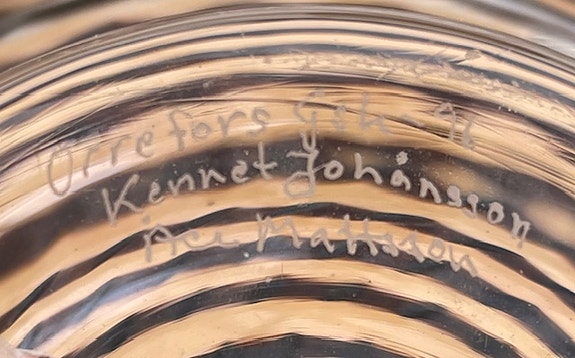 Orrefors
Kennet Johansson
Mattsson